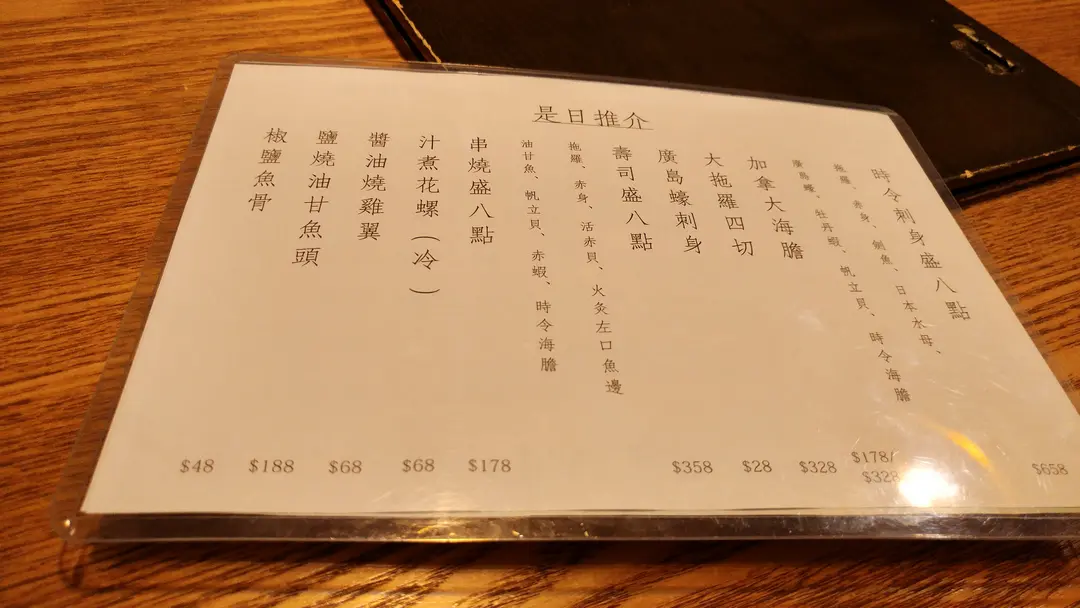 是日推介
時令刺身盛八點
拖羅、赤身、劍魚、日本水母、
廣島蠔、牡丹蝦、帆立貝、時令海膽
$658
加拿大海膽
$178/
$328
大拖羅四切
$328
廣島蠔刺身
$28
壽司盛八點
拖羅、赤身、活赤貝、火炙左口魚邊
油甘魚、帆立貝、赤蝦、時令海膽
$358
串燒盛八點
$178
汁煮花螺（冷）
$68
醬油燒雞翼
$68
鹽燒油甘魚頭
$188
椒鹽魚骨
$48